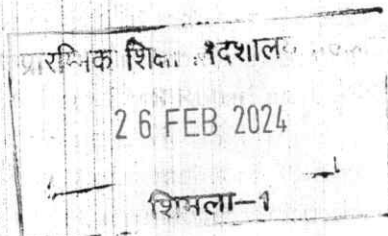 प्रारम्भिक शिक्षा निदेशालय
26 FEB 2024
शिमला-1